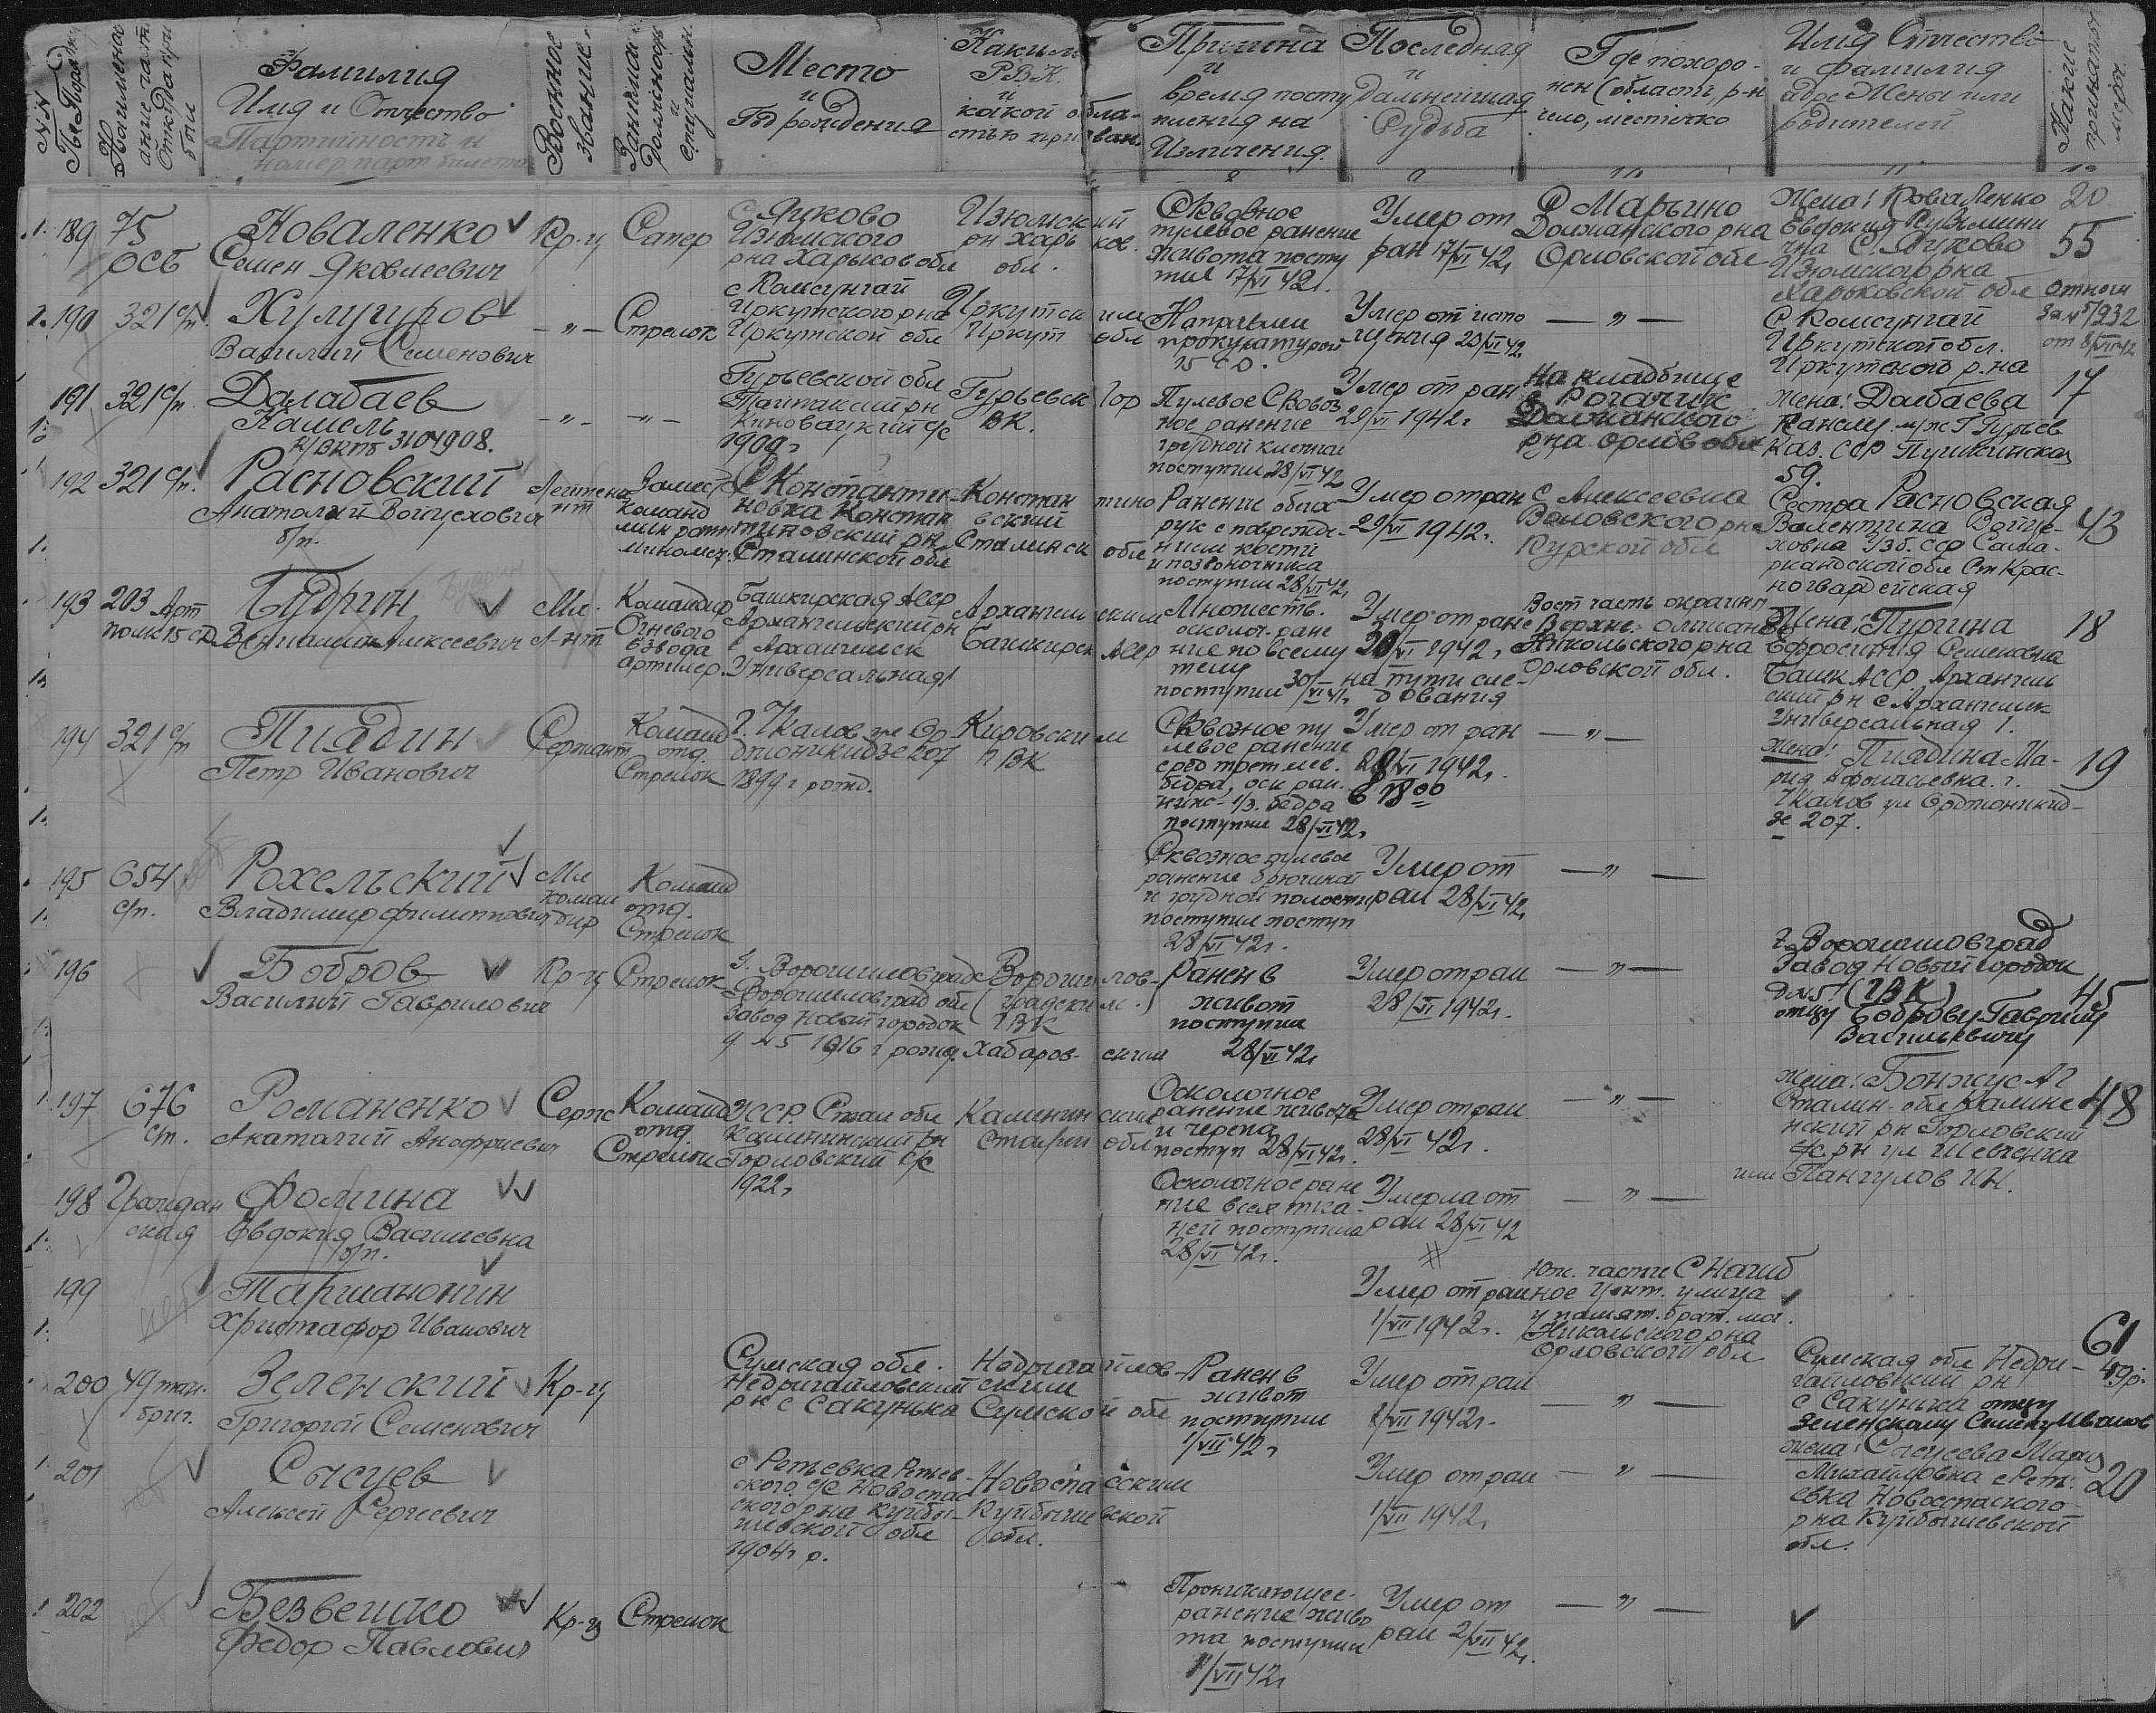 NN По Порядк
Наимена ание част. Откуда при был
Фамилия
Имя и Отчество
Партийность и
номер парт билета
Военное звание.
Занимае должность и специальн.
Место
и
Год рождения
Каким
Р.В.К.
и
какой обла-
стью призван.
Причина
и
время посту
пления на
Излечения.
Последняя
и
Дальнейшая
Судьба
Где похоро-
нен (область, р-н
село, местечко
Имя Отчество
и фамилия
адре Жены или
родителей
Какие приняты мероп.
189 75 ОСБ
Коваленко
Семен Яковлевич
Кр-ц Сапер
С Яуково
Изюмского
рна Харьков обл
Изюмский
рн Харьков.
обл.
Сквозное
пулевое ранение
живота посту
пил 17/VI 42г.
Умер от
ран 17/VI 42г
С Марьино
Должанского рна
Орловской обл
Жена: Коваленко
Евдокия Кузьмини
чна С. Яуково
Изюмскаррна
Харьковской обл
20
55
190 321 с/п
Хулугуров
Василий Семенович
— " — Стрелок
с Комсунгай
Иркутского рна
Иркутской обл
Иркутским
Иркут обл
Направлен
прокуратурой
15 СД.
Умер от исто
щения 20/VI 42
— " —
С Комсунгай
Иркутской обл.
Иркутского р.на
Отнош
За №5/932
от 8/VII 42
191 321 с/п
Далабаев
Камель
К/ВКПб 3101908.
— " — — " —
Гурьевской обл
Тайпакский рн
Киновацкий с/с
1909 г
Гурьевск Гор
ВК.
Пулевое Сквоз
ное ранение
грудной клетки
поступил 28/VI 42
Умер от ран
29/VI 1942г
На кладбище
с Рогатик
Должанского
рна Орлов обл
Жена: Далбаева
Канслу. м/ж Г Гурьев
Каз. ССР Пушкинская
59.
17
192 321 с/п.
Расновский
Анатолий Войцехович
б/п.
Лейтена нт
Замест
Команд
мин роты
миномет.
С Константи
новка Констан
тиновский рн
Сталинской обл
Константино
вский
Сталинск обл
Ранение обеих
рук с поврежде-
нием кости
и позвоночника
поступил 28/VI 42г
Умер от ран
29/VI 1942г.
С Алексеевка
Воловского рна
Курской обл
Сестра Расновская
Валентина Войце-
ховна Узб. ССР Сама-
ркандской обл Ст Крас-
ногвардейская
43
193 203 Арт
полк 15 сд
Пудргин
Вениамин Алексеевич
Мл.
Л-нт
Командир
Огневого
взвода
артилер.
Башкирская АССР
Архангельский рн
с Архангельск
Универсальная 1
Архангельским
Башкирск АССР
Множеств.
осколоч. ране
ние по всему
телу
поступил 30/VI 42
Умер от ране
28/VI 1942г
на пути сле-
дования
Вост часть окраин
с Верхне. Ольшано
Никольского рна
Орловской обл.
Жена: Пургина
Ефросиния Семеновна
Башк АССР Архангель
ский рн с Архангельск
Универсальная 1.
18
194 321 с/п
Пиядин
Петр Иванович
Сержант
Команд
отд.
Стрелок
г. Чкалов ул Ор
джоникидзе 207
1899 г рожд.
Кировским
РВК
Сквозное пу
левое ранение
сред трет лев.
бедра, оск ран.
ниж- 1/3. бедра
поступил 28/VI 42г
Умер от ран
28/VI 1942г.
в 18 00
— " —
Жена: Пиядина Ма-
рия Афонасьевна. г.
Чкалов ул Орджоникид-
зе 207.
19
195 654
с/п.
Рохельский
Владимир филиппович
Мл
коман
дир
Команд
отд.
Стрелок
Сквозное пулевое
ранение брюшной
и грудной полости
поступил поступ
28/VI 42г.
Умер от
ран 28/VI 42г
— " —
196
Бобров
Василий Гаврилович
Кр-ц Стрелок
г. Ворошиловград
Ворошиловград обл
Завод Новый городок
д №5 1916 г рожд.
Ворошилов-
градским.
ГВК
Хабаровским
Ранен в
живот
поступил
28/VI 42г
Умер от ран
28/VI 1942г.
— " —
г. Ворошиловград
Завод Новый городок
д №5 (ГВК)
отцу Боброву Гаврилу
Васильевичу
45
197 676
с/п.
Романенко
Анатолий Анофриевич
Серж
Команд
отд.
Стрелок
УССР. Стал обл
Калининский рн
Горловский с/с
1922г
Калининским
Сталин обл
Осколочное
ранение живота
и черепа
поступ 28/VI 42г.
Умер от ран
28/VI 42г.
— " —
Жена: Бонжус А Г
Сталин. обл Калине
нский рн Горловский
с/с рн ул Шевченка
или Пангулов И Н.
48
198 Граждан
ская
Фолгина
Евдокия Васильевна
б/п.
Осколочное ране
ние всех тка-
ней поступила
28/VI 42г.
Умерла от
ран 28/VI 42
— " —
199
Таршанонин
Христафор Иванович
Умер от ран
1/VII 1942г.
Юж. части С Нагиб
ное Цент. улица
у памят. брат. мог.
Никольского рна
Орловской обл
200 49 тан.
бриг.
Зеленский
Григорий Семенович
Кр-ц
Сумская обл.
Недригайловский
рн с Сакунька
Недригайлов-
ским
Сумской обл
Ранен в
живот
поступил
1/VII 42г
Умер от ран
1/VII 1942г.
— " —
Сумская обл Недри-
гайловский рн
с Сакунька отцу
Зеленскому Семену Иванов
61
49р.
201
Сысуев
Алексей Сергеевич
с Репьевка Репьев-
ского с/с Новоспас
ского рна Куйбы-
шевской обл
1904г р.
Новоспасским
Куйбышевской
обл.
Умер от ран
1/VII 1942г
— " —
жена: Сысуева Мария
Михайловна с Реп.
евка Новоспаского
р на Куйбышевской
обл.
20
202
Безвешко
Федор Павлович
Кр-ц Стрелок
Проникающее-
ранение живо
та поступил
1/VII 42г
Умер от
ран 2/VII 42г.
— " —